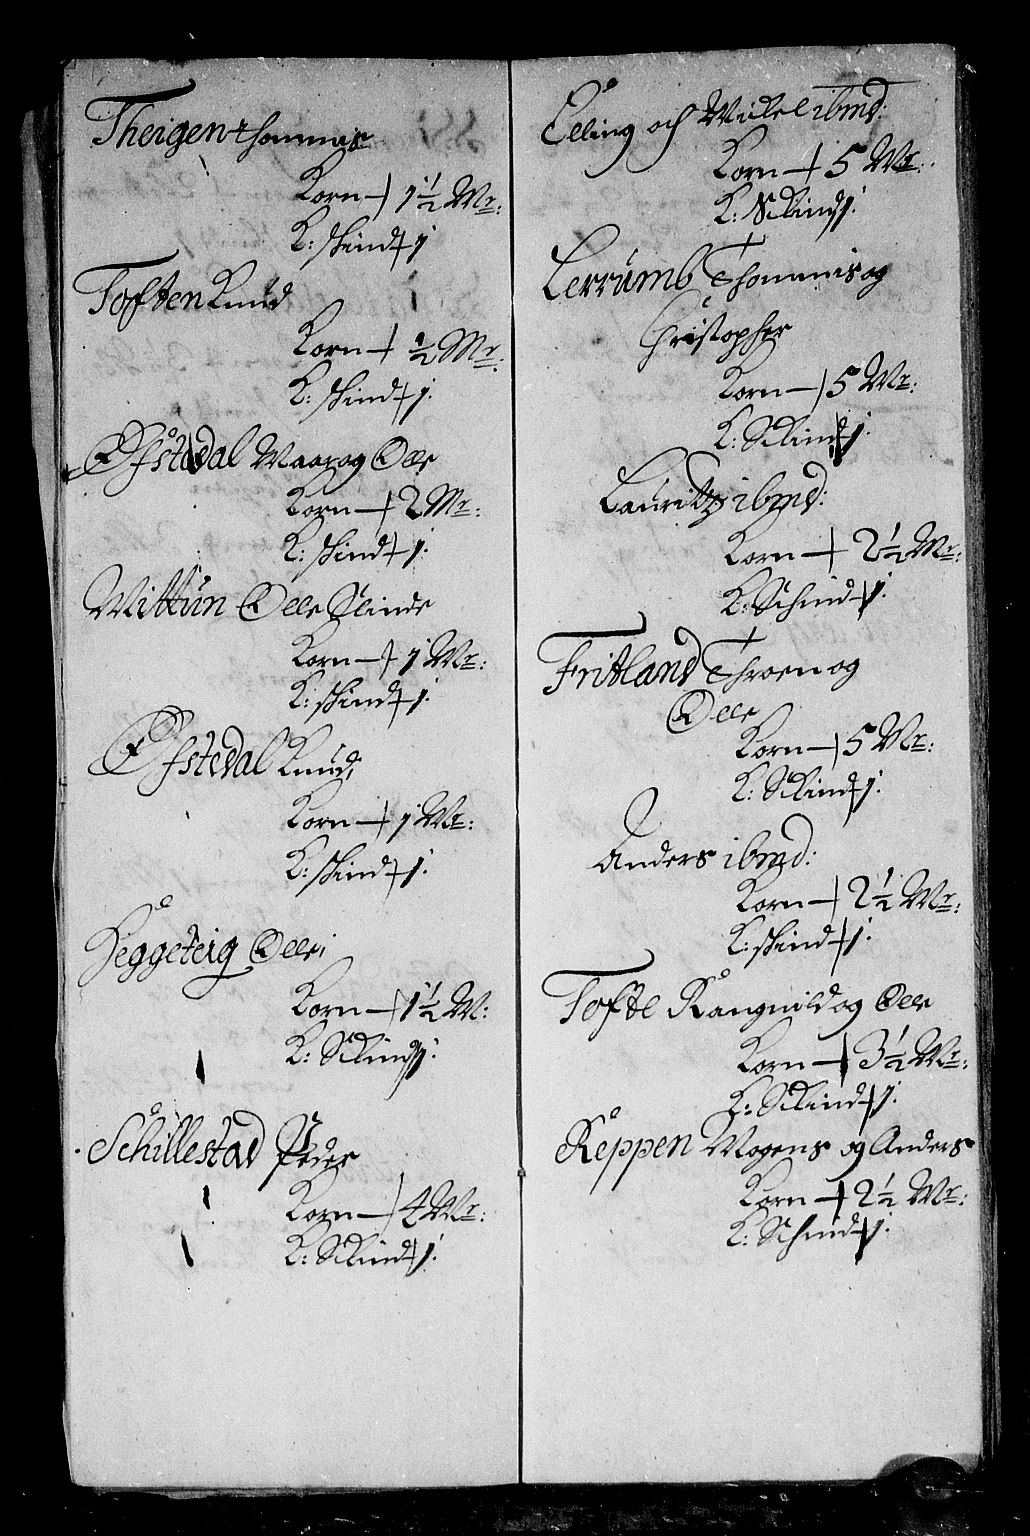 Theigen Thommis
Korn – 1½ Mr:
K: skind – 1.
Toften Knud
Korn – ½ Mr:
K: skind – 1.
Øfstedal Maar og Olle
Korn – 2 Mr:
K: skind – 1.
Wittun Olle Slinde
Korn – 1 Mr:
K: skind – 1.
Øfstedal Knud,
Korn – 1 Mr:
K: skind – 1.
Heggeteig Olle,
Korn – 1½ M:
K: Skind 1.
Schillestad Peder
Korn – 4 Mr:
K: Skind – 1.
Elling och Mickel ibmd:
Korn – 5 Mr:
K: Skind 1.
Lerrumb Thommis og
Christopher
Korn – 5 Mr:
K: Skind 1.
Lauritz ibmd:
Korn – 2½ Mr:
K: Schind – 1.
Fritland Throen og
Olle
Korn – 5 Mr:
K: Skind – 1.
Anders ibmd:
Korn – 2½ Mr:
K: skind – 1.
Tofte Rangnild og Olle
Korn – 3½ Mr:
K: Skind – 1.
Reppen Mogens og Anders
Korn – 2½ Mr:
K: Schind – 1.